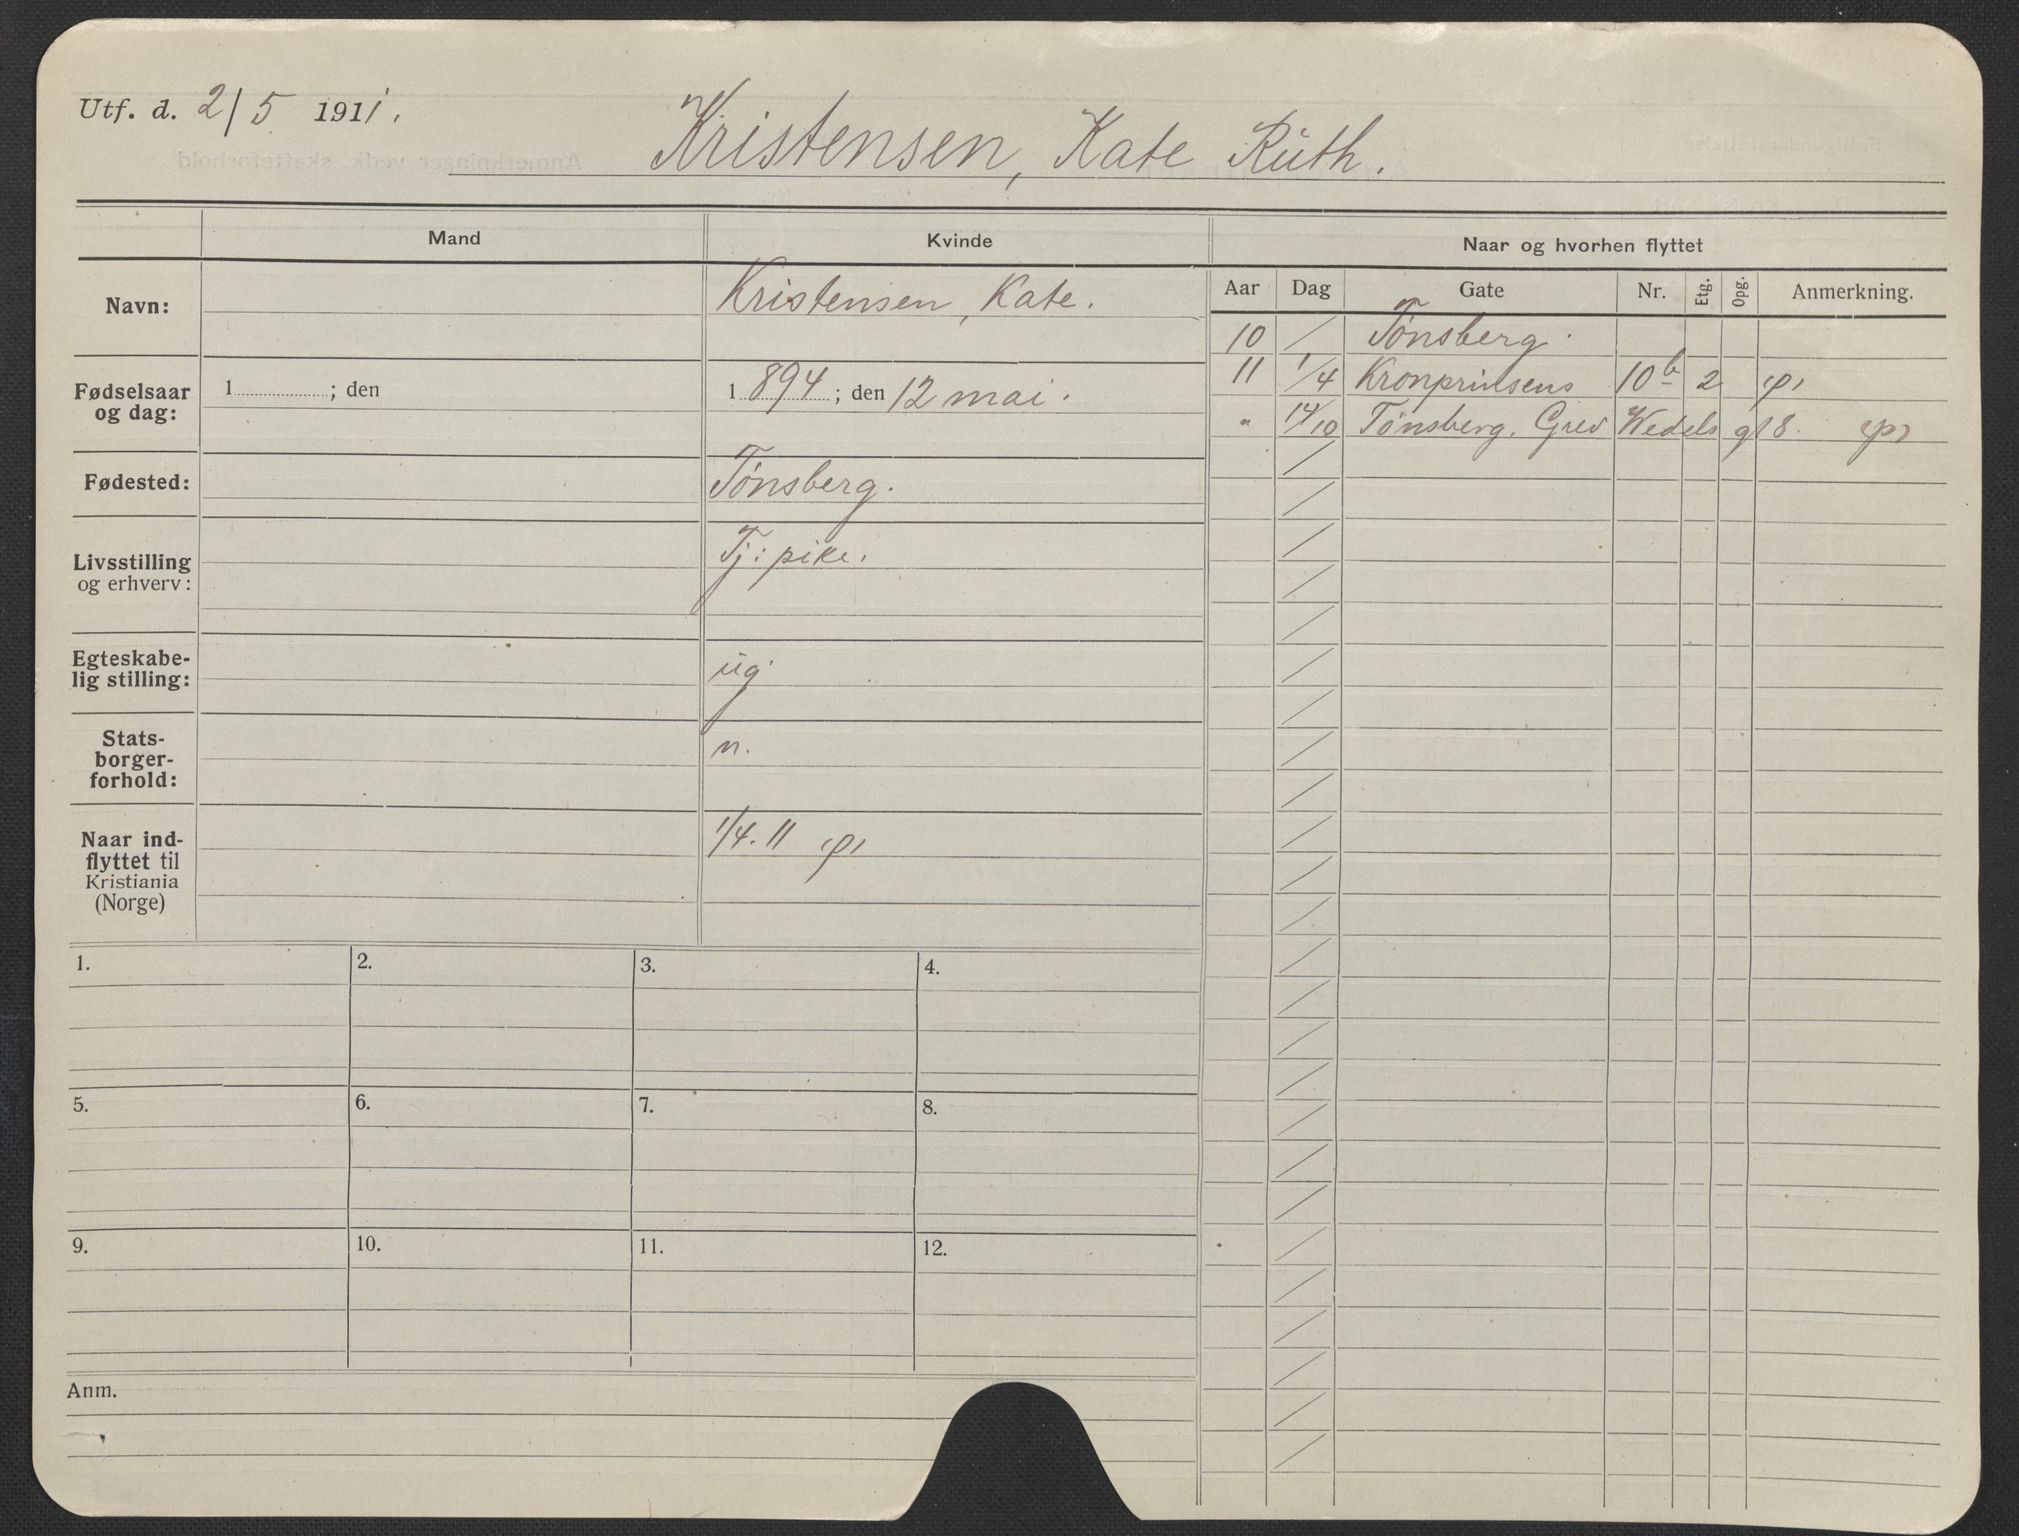 Utf. d. 2/5 1911.
Kristensen, Kate Ruth.
Mand
Kvinde
Naar og hvorhen flyttet
Navn:
Kristensen, Kate.
Fødselsaar
og dag:
1 ; den
1894 ; den 12 mai.
Fødested:
Tönsberg.
Livsstilling
og erhverv:
Tj: pike.
Egteskabe-
lig stilling:
ug
Stats-
borger-
forhold:
n.
Naar ind-
flyttet til
Kristiania
(Norge)
1/4. 11
Aar Dag Gate Nr. Etg. Opg. Anmerkning.
10 / Tönsberg.
11 1/4 Kronprinsens 10b 2
" 14/10 Tönsberg. Grev Wedels gt 8.
1.
2.
3.
4.
5.
6.
7.
8.
9.
10.
11.
12.
Anm.